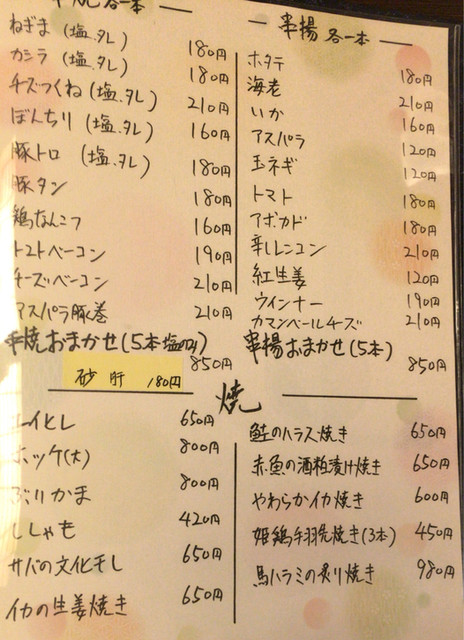 串焼 各一本
ねぎま(塩.タレ) 180円
カシラ(塩.タレ) 180円
チーズつくね(塩.タレ) 210円
ぼんちり(塩.タレ) 160円
豚トロ(塩.タレ) 180円
豚タン 180円
鶏なんこつ 160円
トマトベーコン 190円
チーズベーコン 210円
アスパラ豚巻 210円
串焼おまかせ(5本塩のみ) 850円
砂肝 180円
串揚 各一本
ホタテ 180円
海老 210円
いか 160円
アスパラ 120円
玉ネギ 120円
トマト 180円
アボカド 180円
辛しレンコン 210円
紅生姜 120円
ウインナー 190円
カマンベールチーズ 210円
串揚おまかせ(5本) 850円
焼
エイヒレ 650円
ホッケ(大) 800円
ぶりかま 800円
ししゃも 420円
サバの文化干し 650円
イカの生姜焼き 650円
鮭のハラス焼き 650円
赤魚の酒粕漬け焼き 650円
やわらかイカ焼き 600円
姫鶏手羽先焼き(3本) 450円
馬ハラミの炙り焼き 980円